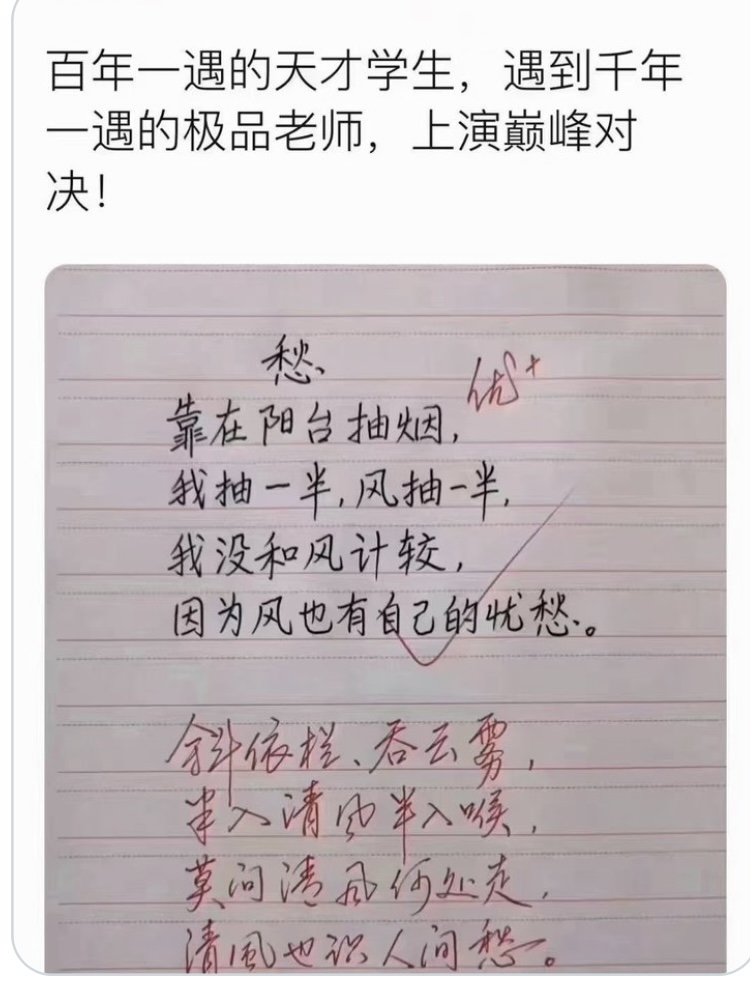 百年一遇的天才学生，遇到千年
一遇的极品老师，上演巅峰对
决！
愁
优+
靠在阳台抽烟，
我抽一半，风抽一半，
我没和风计较，
因为风也有自己的忧愁。
斜依栏、吞云雾，
半入清风半入喉，
莫问清风何处走，
清風也识人间愁。